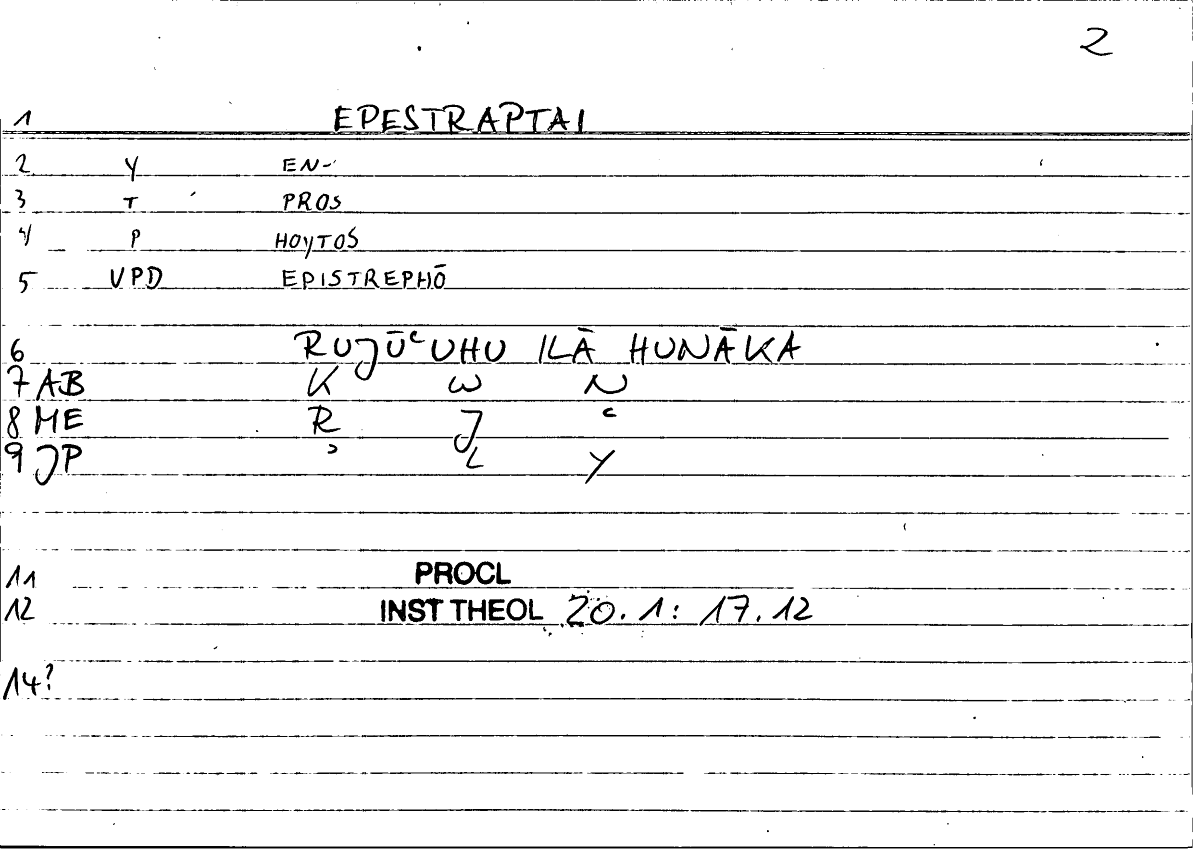 2
1 EPESTRAPTAI
2 Y EN-
3 T PROS
4 P HOYTOS
5 VPD EPISTREPHŌ
6 RUJŪʿUHU ILĀ HUNĀKA
7 AB K W N
8 ME R J ʿ
9 JP ʾ L Y
11 PROCL
12 INST THEOL 20.1: 17.12
14?